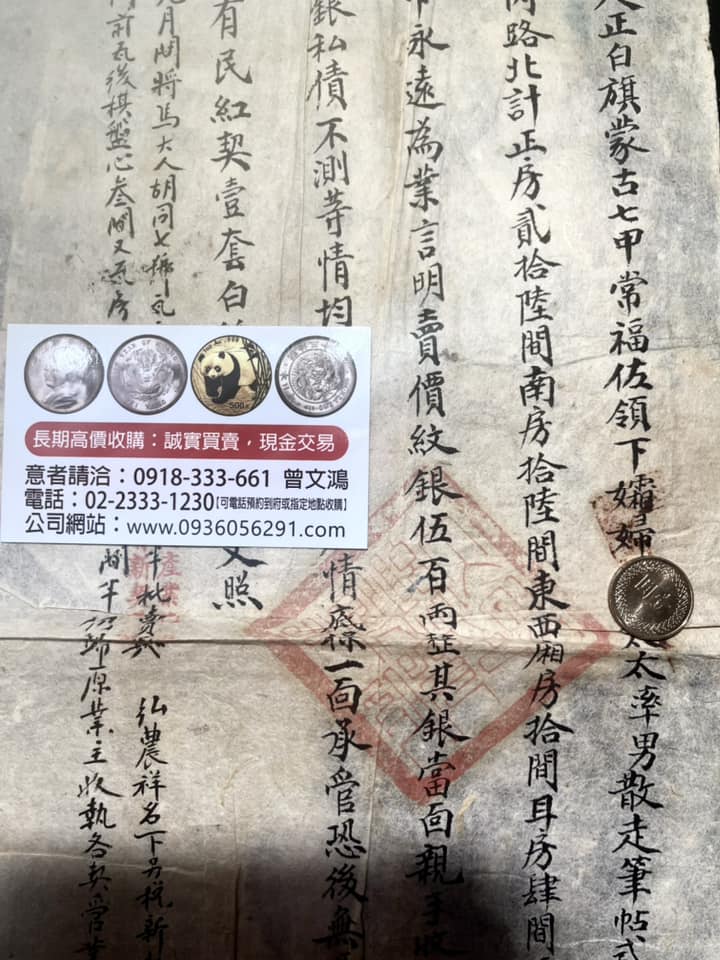 正白旗蒙古七甲常福佐領下孀婦
太太率男散走筆帖式
路北計正房貳拾陸間南房拾陸間東西廂房拾間耳房肆間
永遠為業言明賣價紋銀伍百兩整其銀當面親手收
銀私債不測等情均
情愿一面承管恐後無
有民紅契壹套白
照
月間將馬大人胡同七
半批賣與 弘農祥名下另稅新
前瓦後棋盤心叁間又瓦房
間半仍歸原業主收執各契管業
500
長期高價收購：誠實買賣，現金交易
意者請洽：0918-333-661 曾文鴻
電話：02-2333-1230【可電話預約到府或指定地點收購】
公司網站：www.0936056291.com